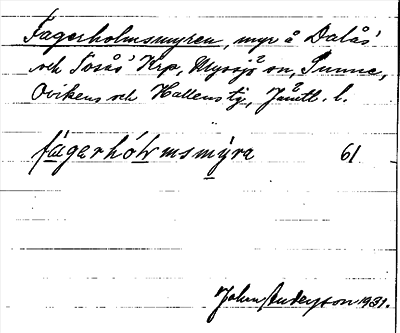 Fagerholmsmyren, myr å Dalås'
och Tosås' Krp, Myssjö sn, Sunne,
Ovikens och Hallens tg, Jämtl. l.
fagerhólmsmýra 61
John Anderson 1931.